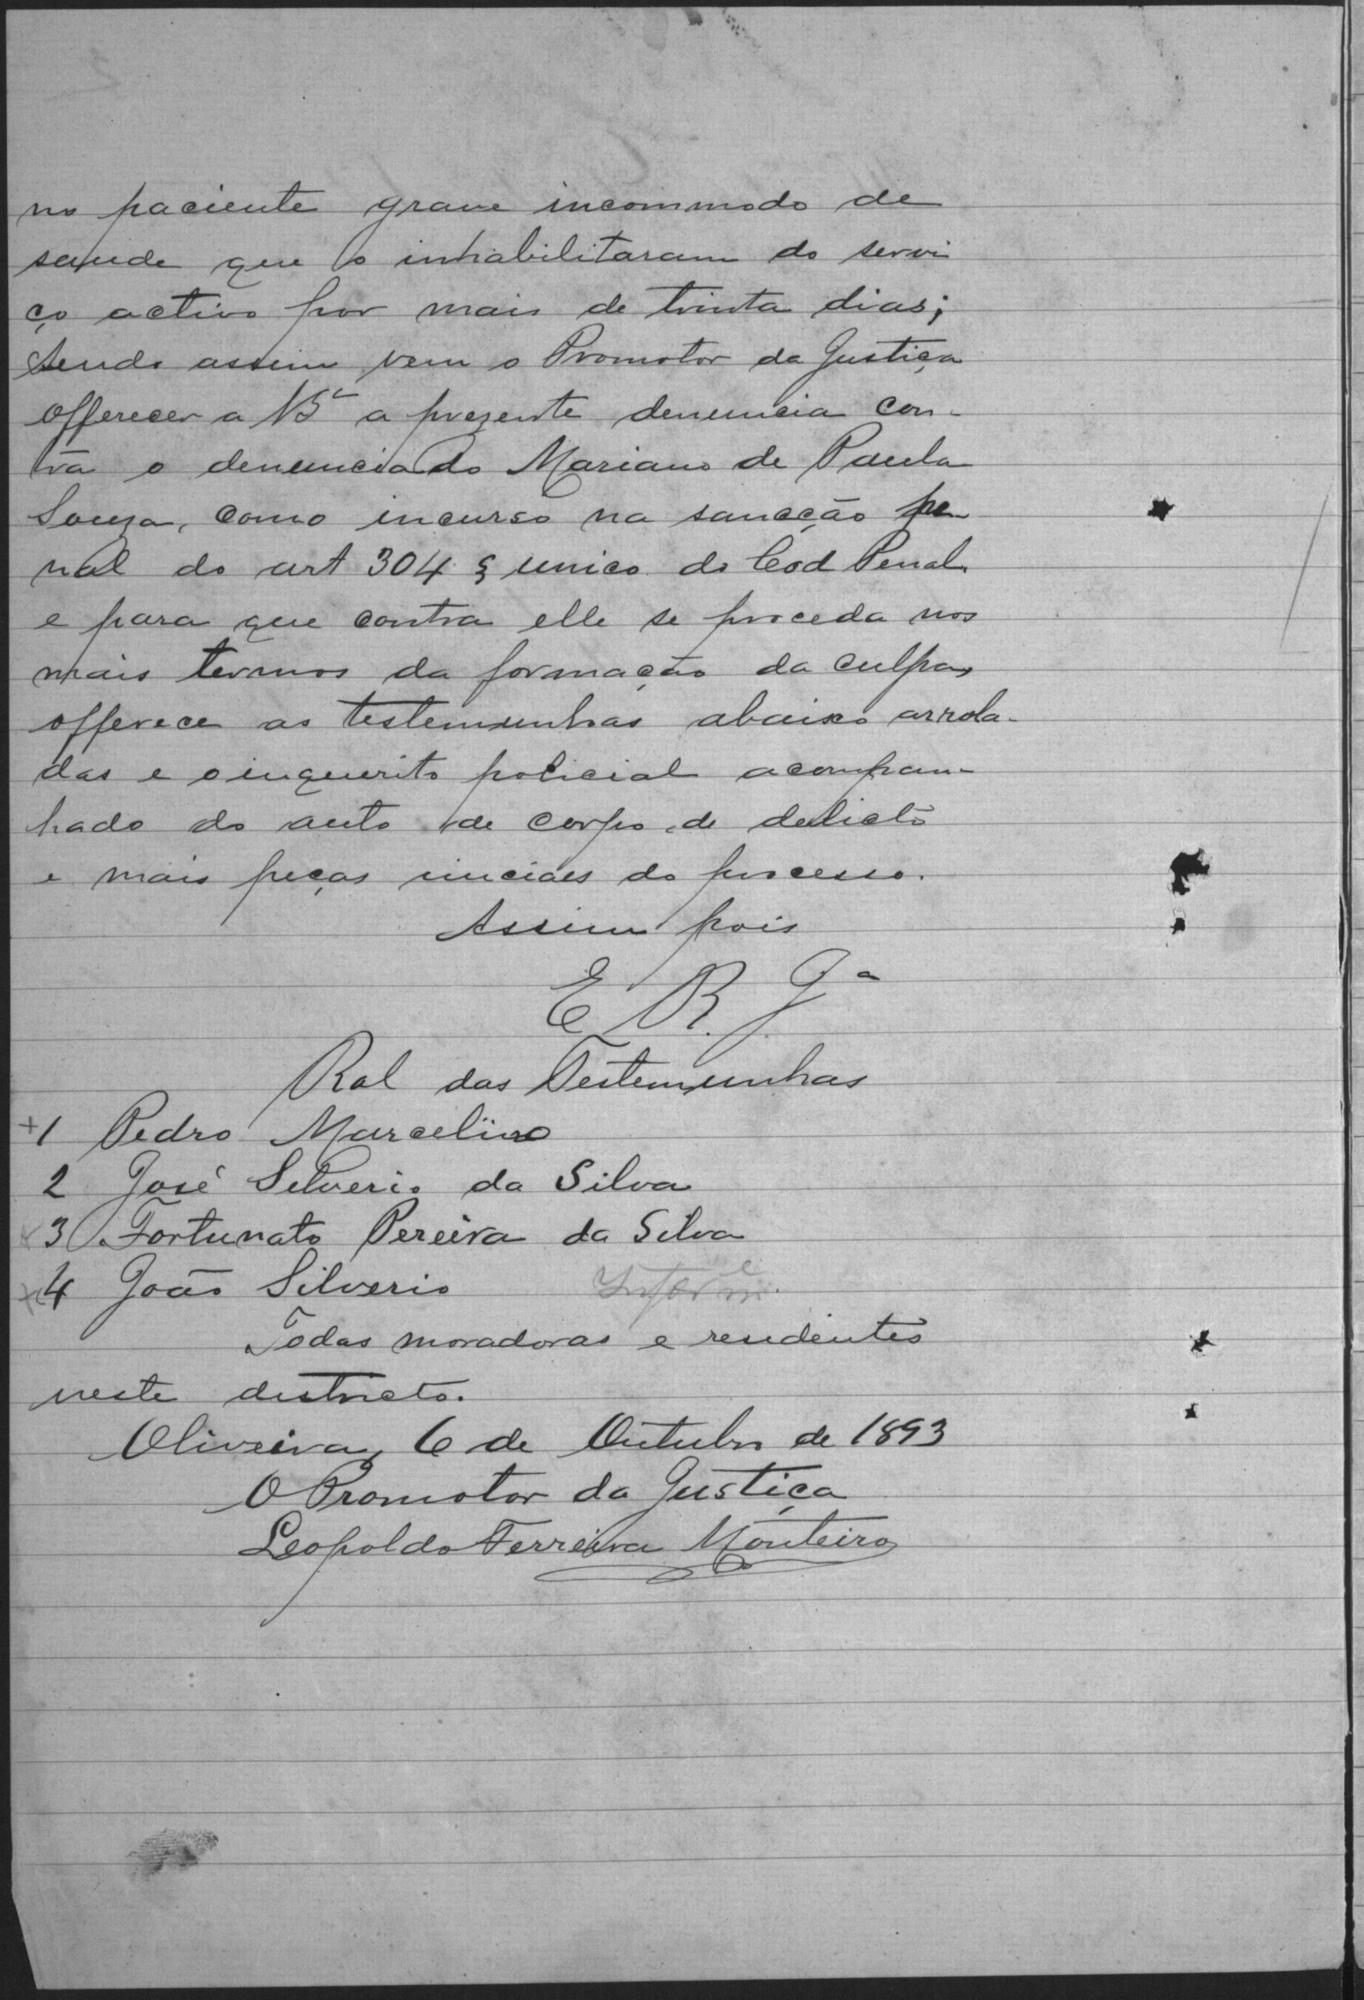 no paciente grave incommodo de
saude que o inhabilitaram do servi
ço activo por mais de trinta dias;
sendo assim vem o Promotor da Justiça
offerecer a VSª a prezente denuncia con-
tra o denunciado Mariano de Paula
Souza, como incurso na sancção pe
nal do art 304 § unico do Cod Penal
e para que contra elle se proceda nos
mais termos da formação da culpa,
offerece as testemunhas abaixo arrola-
das e o inquerito policial acompan-
hado do auto de corpo de delicto
e mais peças iniciaes do processo.
Assim pois
E R. Jª
Rol das Testemunhas
+1 Pedro Marcelino
2 José Silverio da Silva
3 Fortunato Pereira da Silva
+4 João Silverio Inform.e
Todas moradoras e residentes
neste districto.
Oliveira, 6 de Outubro de 1893
O Promotor da Justiça
Leopoldo Ferreira Monteiro